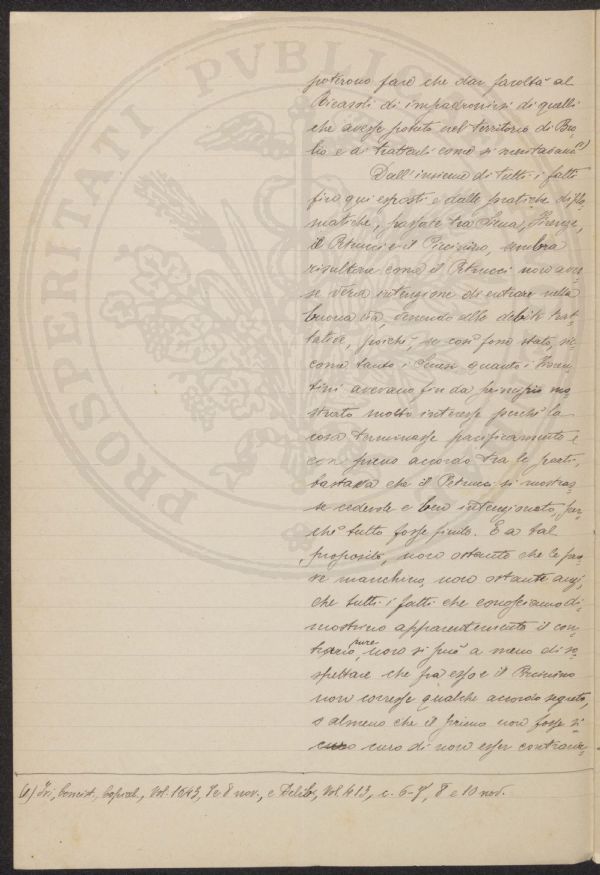 PROSPERITATI PVBLICAE
poterono fare che dar facoltà al
Ricasoli di impadronirsi di quelli
che avesse potuto nel territorio di Bro-
lio e di trattarli come si meritavano (1)
Dall'insieme di tutti i fatti
fin qui esposti e dalle pratiche diplo-
matiche, passate tra Siena, Firenze,
il Petrucci e il Piccinino, sembra
risultare come il Petrucci non aves-
se vera intenzione di entrare nella
buona via, venendo alle debite trat-
tative, poiché, se così fosse stato, sic-
come tanto i Senesi quanto i Fioren-
tini avevano fin da principio mo-
strato molto interesse perché la
cosa terminasse pacificamente e
con pieno accordo tra le parti,
bastava che il Petrucci si mostras-
se cedevole e ben intenzionato, per-
ché tutto fosse finito. E a tal
proposito, non ostante che le pro-
ve manchino, non ostante anzi,
che tutti i fatti che conosciamo di-
mostrino apparentemente il con-
trario, pure non si può a meno di so-
spettare che fra esso e il Piccinino
non corresse qualche accordo segreto,
o almeno che il primo non fosse si-
curo di non esser contrav-
(1) Ivi, Concist., Copial., Vol. 1643, 7 e 8 nov., e Delib., Vol. 413, c. 6-7, 8 e 10 nov.